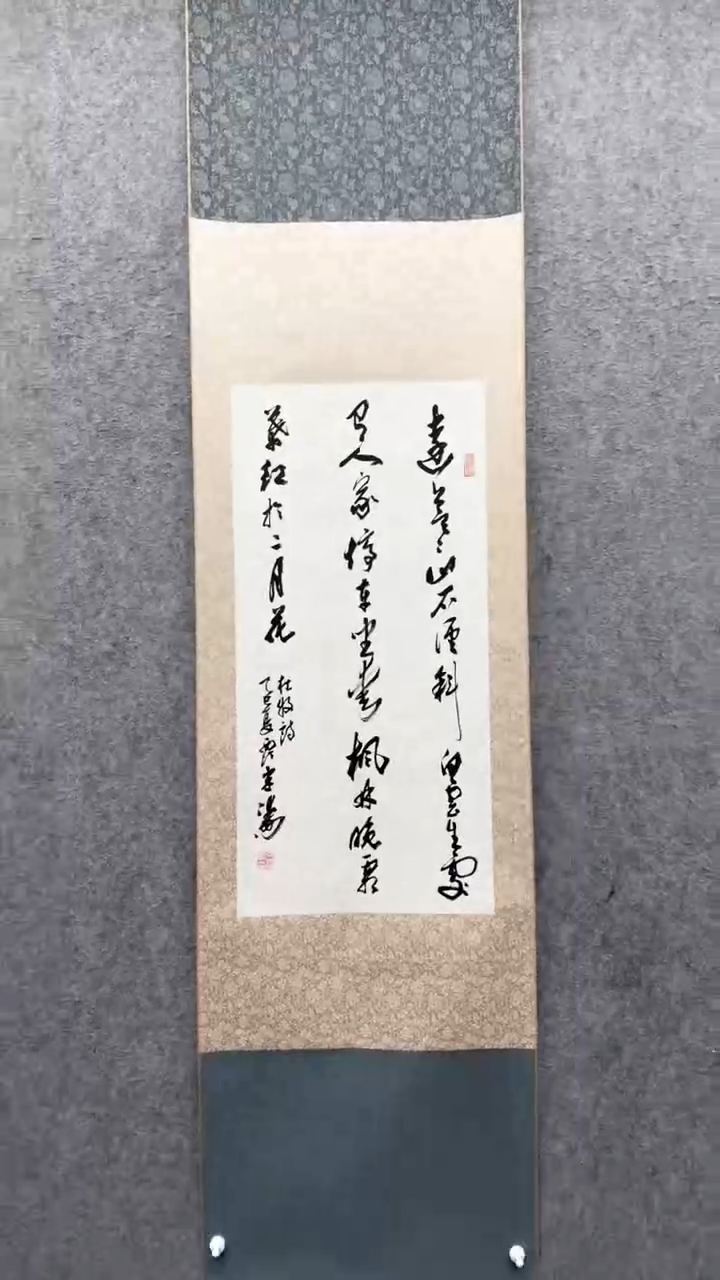 遠上寒山石徑斜白雲生處
有人家停車坐愛楓林晚霜
葉紅於二月花
杜牧詩
乙巳夏